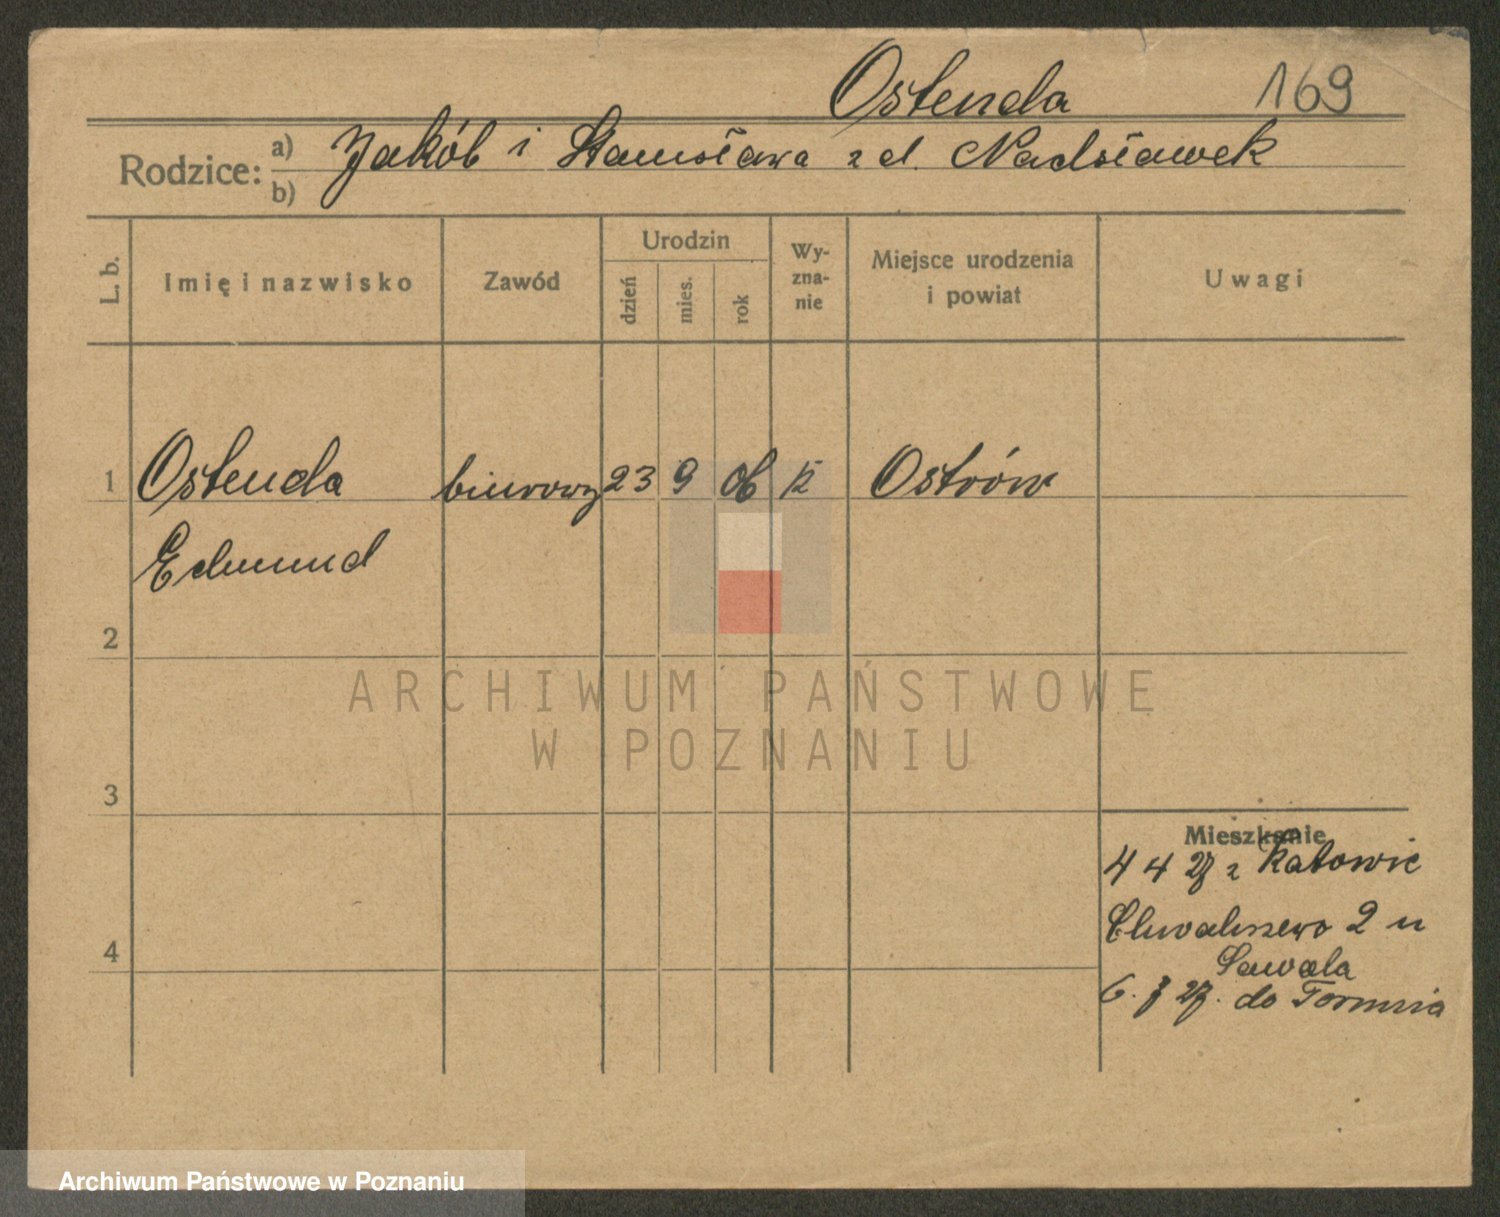 Ostenda 169
Rodzice: a) Jakób i Stanisława z d. Nadstawek
b)
L. b. Imię i nazwisko Zawód Urodzin dzień mies. rok Wyznanie Miejsce urodzenia i powiat Uwagi
1 Ostenda biurowy 23 9 06 k Ostrów
Edmund
2
ARCHIWUM PAŃSTWOWE
W POZNANIU
3
Mieszkanie
4 4 27 z Katowic
Chwaliszewo 2 u
4
Sawala
6. 7 27. do Torunia
Archiwum Państwowe w Poznaniu